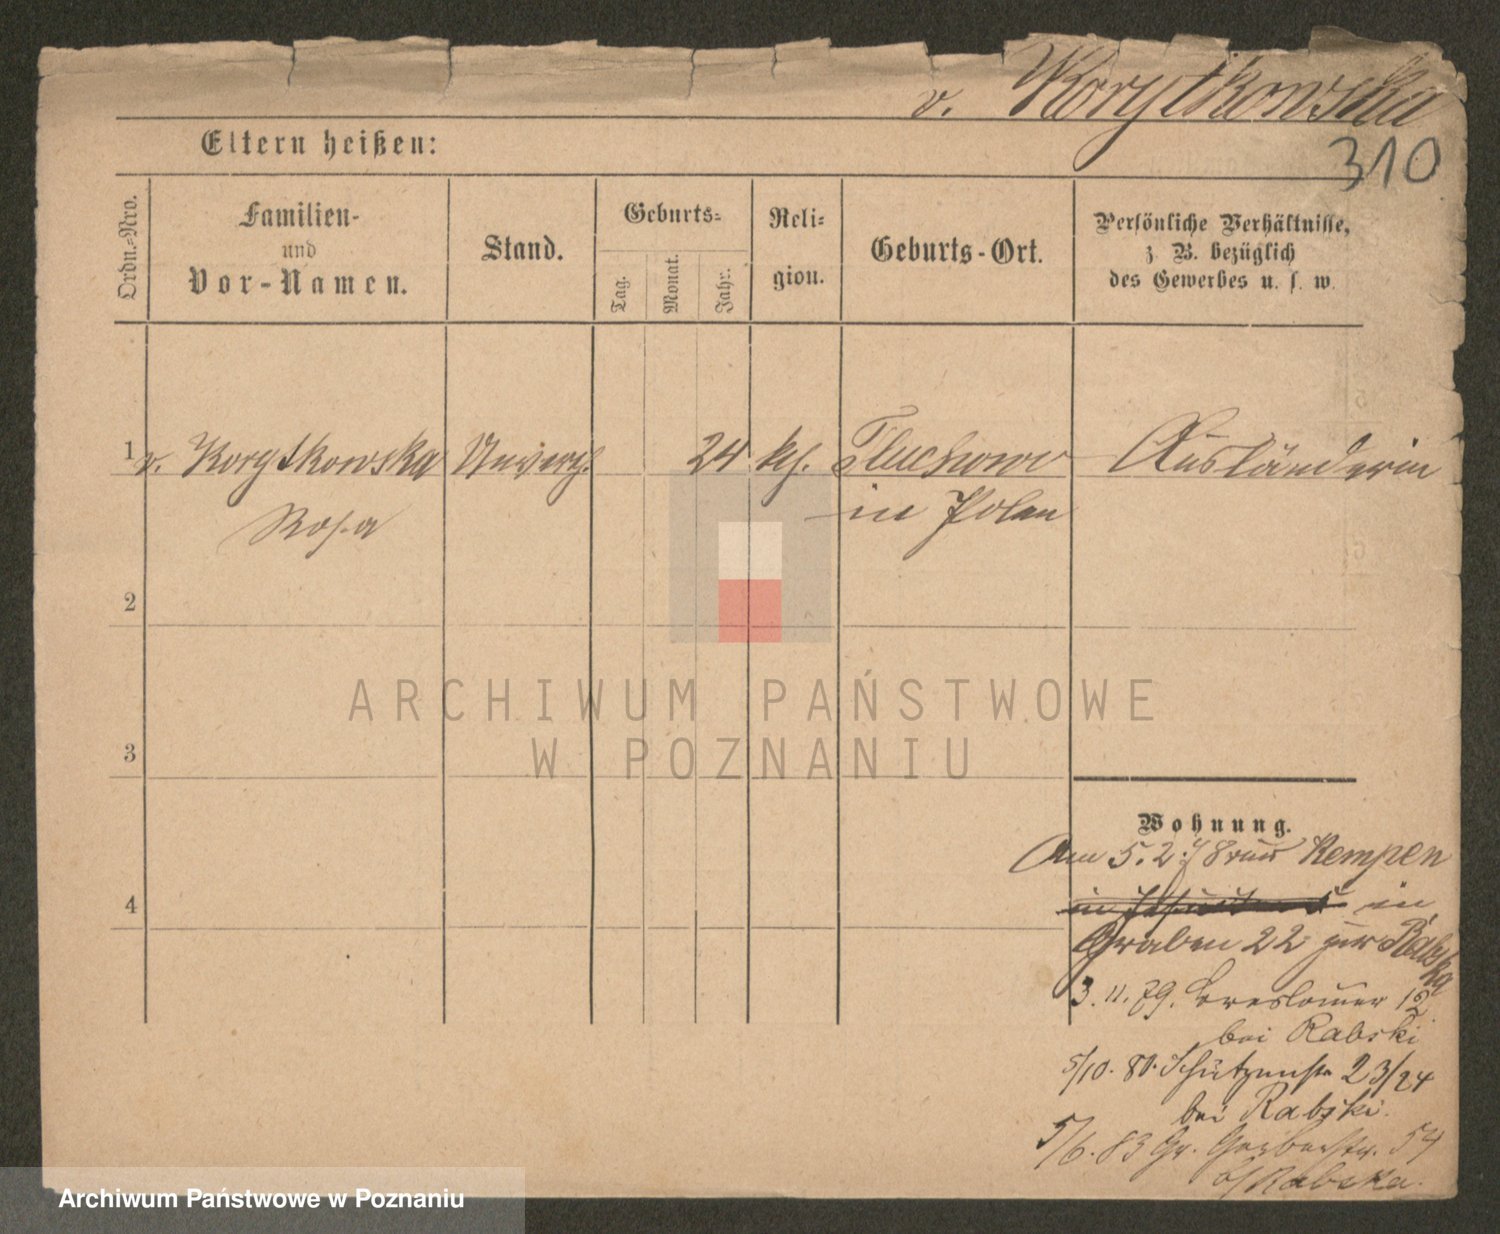 v. Korytkowska
310
Eltern heißen:
Ordn.=Nro.
Familien-
und
Vor-Namen.
Stand.
Geburts=
Tag.
Monat.
Jahr.
Reli=
gion.
Geburts-Ort.
Persönliche Verhältnisse,
z. B. bezüglich
des Gewerbes u. s. w.
1 v. Korytkowska Unverh. 24 kth. Tluchowo Ausländerin
Rosa in Polen
2
3
4
Wohnung.
Am 5.2.78 aus Kempen
in
Graben 22 zur Rabska
3.11.79. Breslauer 12
bei Rabski
5/10. 80. Schützenstr 23/24
bei Rabski.
5/6. 83 Gr. Gerberstr. 54
b/ Rabska.
ARCHIWUM PAŃSTWOWE
W POZNANIU
Archiwum Państwowe w Poznaniu